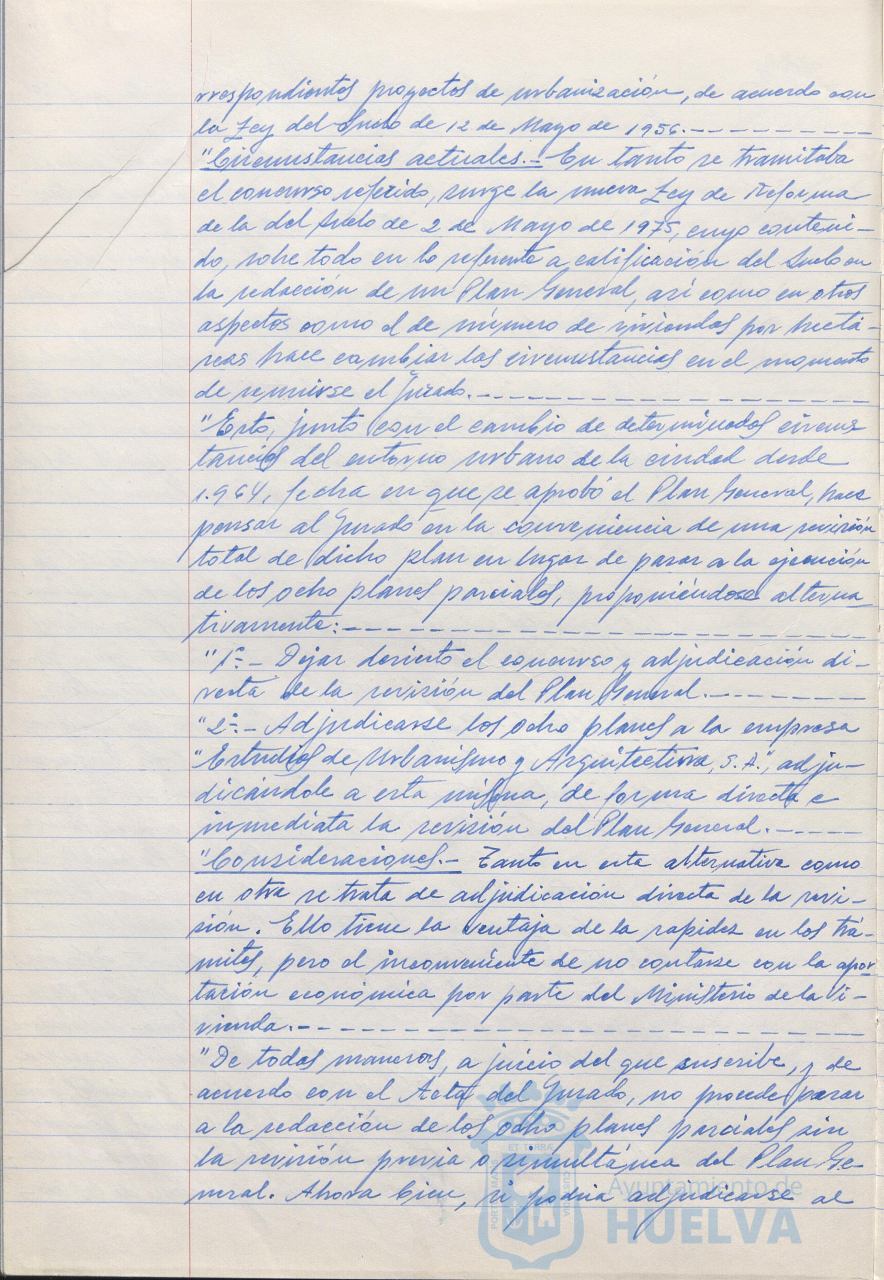 rrespondientes proyectos de urbanización, de acuerdo con
la Ley del Suelo de 12 de Mayo de 1956.----------
"Circunstancias actuales.- En tanto se tramitaba
el concurso referido, surge la nueva Ley de Reforma
de la del Suelo de 2 de Mayo de 1975, cuyo conteni-
do, sobre todo en lo referente a calificación del Suelo en
la redacción de un Plan General, así como en otros
aspectos como el de número de viviendas por hectá-
reas hace cambiar las circunstancias en el momento
de reunirse el Jurado.-----------------
"Esto, junto con el cambio de determinadas circuns
tancias del entorno urbano de la ciudad desde
1.964, fecha en que se aprobó el Plan General, hace
pensar al Jurado en la conveniencia de una revisión
total de dicho plan en lugar de pasar a la ejecución
de los ocho planes parciales, proponiéndose alterna_
tivamente:-----------------------
"1º.- Dejar desierto el concurso y adjudicación di-
recta de la revisión del Plan General.-------
"2º.- Adjudicarse los ocho planes a la empresa
"Estudios de Urbanismo y Arquitectura, S.A.", adju-
dicándole a esta misma, de forma directa e
inmediata la revisión del Plan General.-----
"Consideraciones.- Tanto en esta alternativa como
en otra se trata de adjudicación directa de la revi-
sión. Ello tiene la ventaja de la rapidez en los trá-
mites, pero el inconveniente de no contarse con la apor
tación económica por parte del Ministerio de la Vi-
vienda.--------------------------
"De todas maneras, a juicio del que suscribe, y de
acuerdo con el Acta del Jurado, no procede pasar
a la redacción de los ocho planes parciales sin
la revisión previa o simultánea del Plan Ge-
neral. Ahora bien, si podría adjudicarse al
Ayuntamiento de
HUELVA